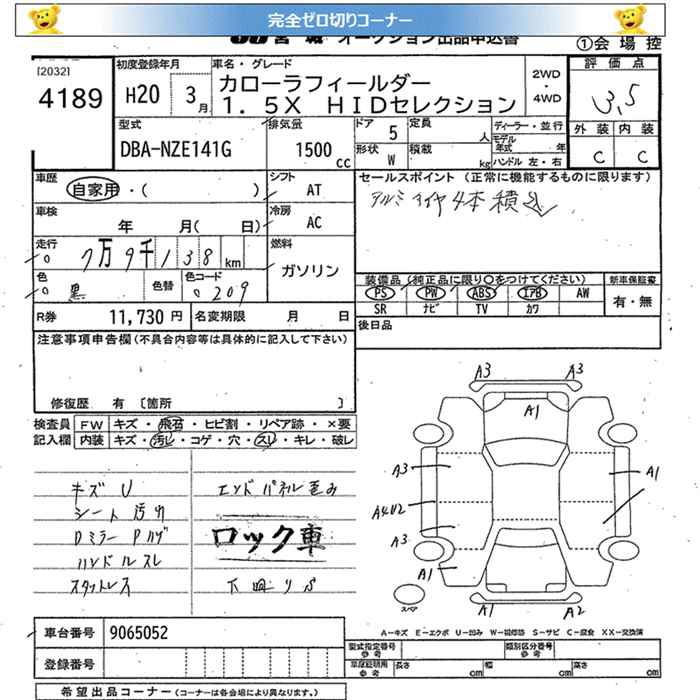 完全ゼロ切りコーナー
オークション出品申込書
①会場控
[2032]
4189
初度登録年月
H20 3月
車名・グレード
カローラフィールダー
1.5X HIDセレクション
2WD
・
4WD
評価点
3,5
外装 内装
C C
型式
DBA-NZE141G
排気量
1500cc
ドア 5
形状 W
定員 人
積載 kg
ディーラー・並行
モデル年式 年
ハンドル 左・右
車歴
自家用・( )
シフト
AT
セールスポイント(正常に機能するものに限ります)
アルミタイヤ4本積込
車検
年 月( 日)
冷房
AC
走行
7万9千138km
燃料
ガソリン
色
黒
色替
色コード
209
装備品(純正品に限り○をつけてください)
PS PW ABS エアB AW
SR ナビ TV カワ
新車保証書
有・無
R券 11,730円
名変期限 月 日
後日品
注意事項申告欄(不具合内容等は具体的に記入して下さい)
修復歴 有 [箇所 ]
検査員記入欄
FW キズ・飛石・ヒビ割・リペア跡・×要
内装 キズ・汚レ・コゲ・穴・スレ・キレ・破レ
キズ U
シート汚れ
Dミラー Pハゲ
ハンドルスレ
スタットレス
エンドパネル歪み
ロック車
下廻りS
A3 A3
A1
A3 A1
A4U2
A3
A1
A1 A2
スペア
A－キズ E－エクボ U－凹み W－補修跡 S－サビ C－腐食 XX－交換済
車台番号 9065052
登録番号
型式指定番号 参考
類別区分番号 参考
車庫証明用 参考
長さ cm 幅 cm 高さ cm
希望出品コーナー(コーナーは各会場により異なります。)